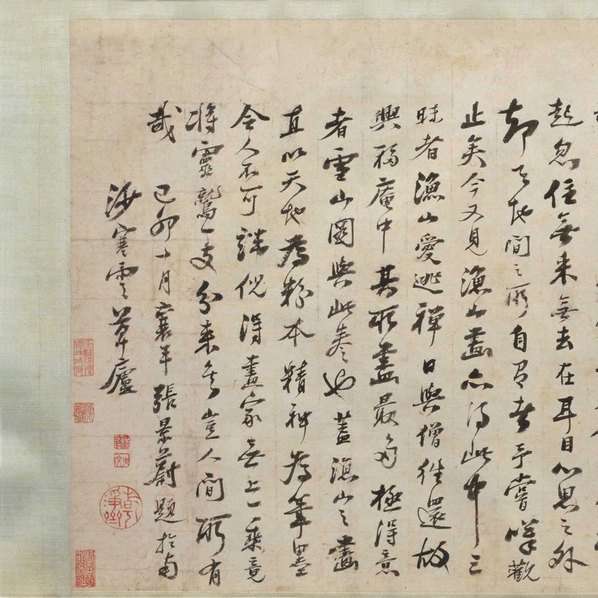 起忽住無来無去在耳目心思之外
却天地間之所自有者予嘗嘆觀
止矣今又見漁山畫亦得此中三
昧者漁山愛逃禪日與僧往還故
興福庵中其所畫最多極得意
者雪山圖與此卷也蓋漁山之畫
直以天地為粉本精神為筆墨
令人不可端倪得畫家無上一乘竟
将靈鷲一支分来矣豈人間所有
哉 己卯十月襄平張景蔚題於南
沙寒雲草廬